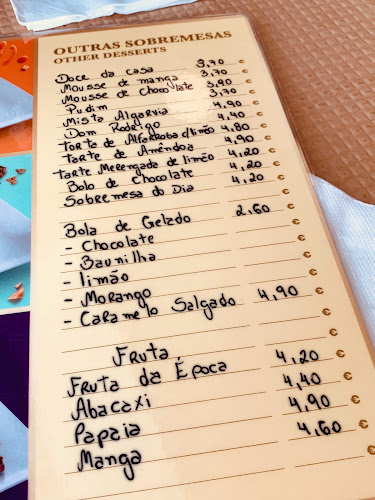 OUTRAS SOBREMESAS
OTHER DESSERTS
Doce da casa 3,70 €
Mousse de manga 3,70 €
Mousse de chocolate 3,90 €
Pudim 3,70 €
Mista Algarvia 4,90 €
Dom Rodrigo 4,40 €
Torta de Alfarroba c/limão 4,80 €
Tarte de Amêndoa 4,90 €
Tarte Merengada de limão 4,20 €
Bolo de Chocolate 4,20 €
Sobremesa do Dia 4,20 €
€
Bola de Gelado 2,60 €
- Chocolate €
- Baunilha €
- limão €
- Morango €
- Caramelo Salgado 4,90 €
€
Fruta €
Fruta da Época 4,20 €
Abacaxi 4,40 €
Papaia 4,90 €
Manga 4,60 €